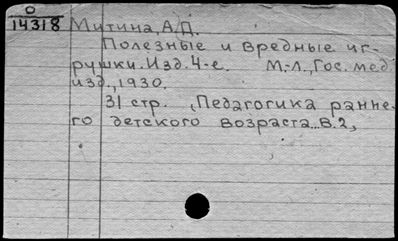 0
14318 Митина, А.Д.
Полезные и вредные иг-
рушки. Изд. 4-е. М.-л., Гос. мед.
изд., 1930.
31 стр. , Педагогика ранне-
го детского возраста.. В.2,